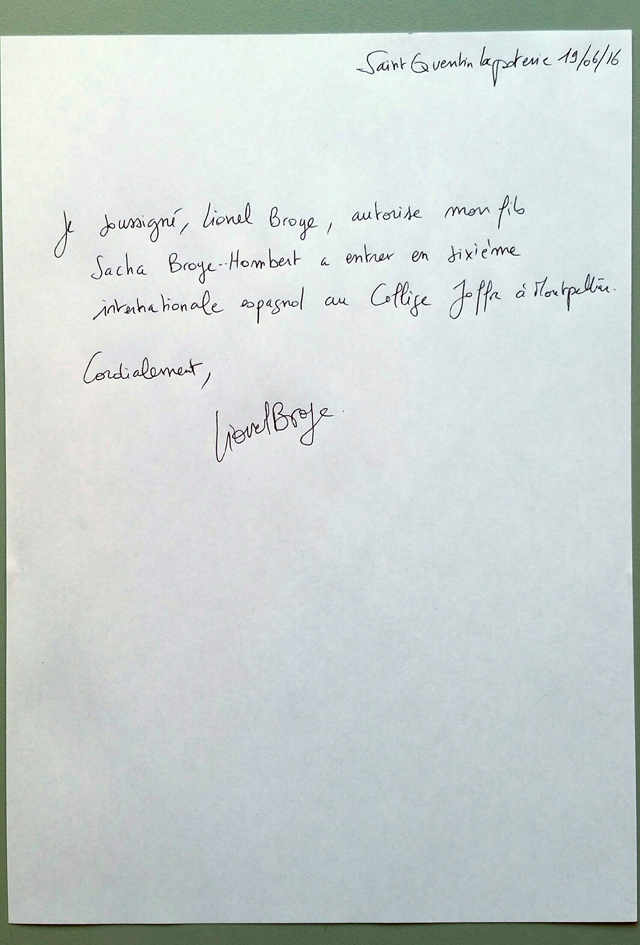 Saint Quentin la poterie 19/06/16
Je soussigné, Lionel Broye, autorise mon fils
Sacha Broye-Hombert a entrer en sixième
internationale espagnol au Collège Joffre à Montpellier.
Cordialement,
Lionel Broye.